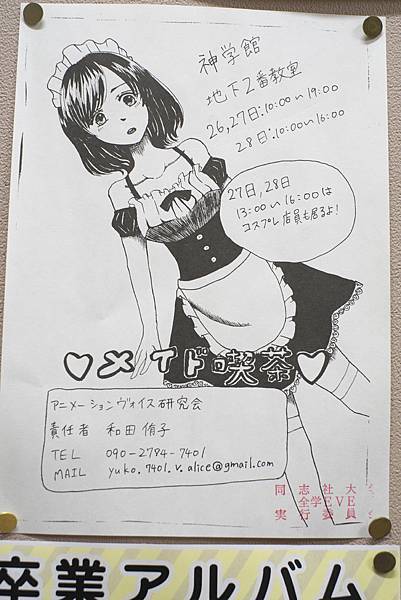 神学館
地下2番教室
26,27日:10:00~19:00
28日:10:00~16:00
27日,28日
13:00~16:00は
コスプレ店員も居るよ!
♡メイド喫茶♡
アニメーションヴォイス研究会
責任者 和田 侑子
TEL 090-2784-7401
MAIL yuko.7401.v.alice@gmail.com
同志社大
全学EVE
実行委員
卒業アルバム